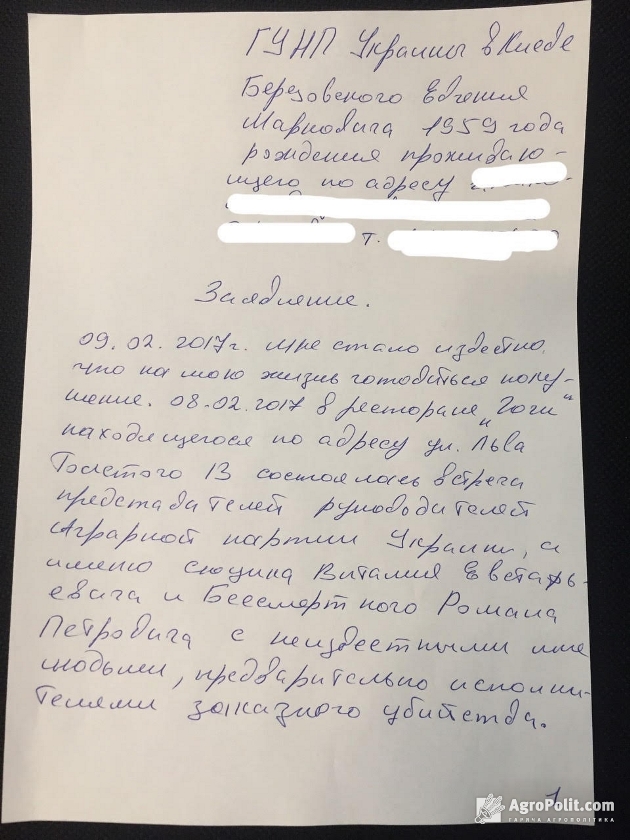 ГУНП Украины в Киеве
Березовского Евгения
Марковича 1959 года
рождения прожидаю-
щего по адресу
т.
Заявление.
09.02.2017г. мне стало известно,
что на мою жизнь готовиться поку-
шение. 08.02.2017 в ресторане „Гоги“
находящегося по адресу ул. Льва
Толстого 13 состоялась встреча
представителей руководителей
Аграрной партии Украины, а
имено Скоцика Виталия Евстафь-
евича и Бессмертного Романа
Петровича с неизвестными мне
людьми, предварительно исполни-
телями заказного убийства.
1
AgroPolit.com
ГАРЯЧА АГРОПОЛІТИКА